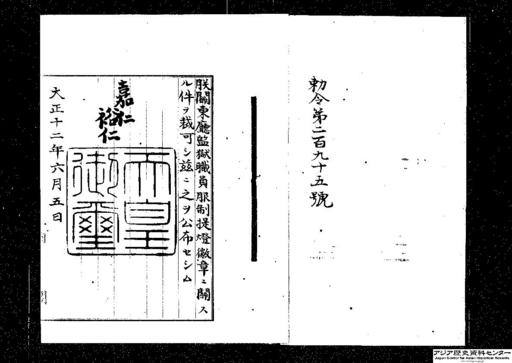 勅令第二百九十五號
朕關東廳監獄職員服制提燈徽章ニ關ス
ル件ヲ裁可シ茲ニ之ヲ公布セシム
嘉仁
裕仁
天皇
御璽
大正十二年六月五日
アジア歴史資料センター
Japan Center for Asian Historical Records